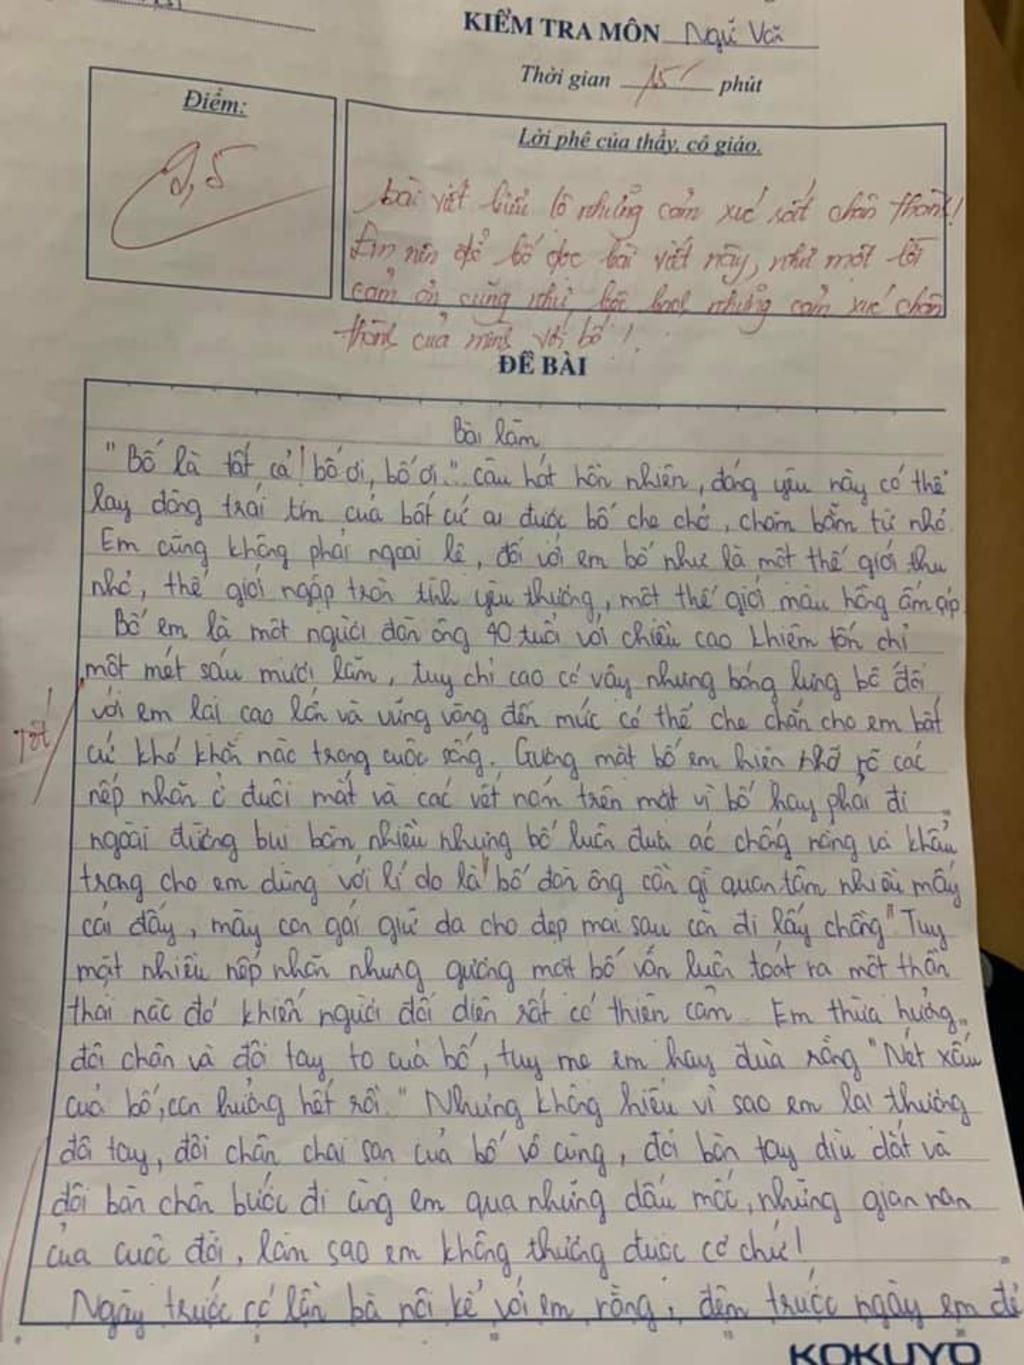 KIỂM TRA MÔN Ngữ Văn
Thời gian 15' phút
Điểm:
9,5
Lời phê của thầy, cô giáo.
bài viết biểu lộ những cảm xúc rất chân thành!
Em nên để bố đọc bài viết này, như một lời
cảm ơn cũng như bộc bạch những cảm xúc chân
thành của mình với bố!
ĐỀ BÀI
Bài làm
"Bố là tất cả! bố ơi, bố ơi.." câu hát hồn nhiên, đáng yêu này có thể
lay động trái tim của bất cứ ai được bố che chở, chăm bẵm từ nhỏ.
Em cũng không phải ngoại lệ, đối với em bố như là một thế giới thu
nhỏ, thế giới ngập tràn tình yêu thương, một thế giới màu hồng ấm áp.
Bố em là một người đàn ông 40 tuổi với chiều cao khiêm tốn chỉ
một mét sáu mươi lăm, tuy chỉ cao có vậy nhưng bóng lưng bố đối
với em lại cao lớn và vững vàng đến mức có thể che chắn cho em bất
Tốt!
cứ khó khăn nào trong cuộc sống. Gương mặt bố em hiện rõ các
nếp nhăn ở đuôi mắt và các vết nám trên mặt vì bố hay phải đi
ngoài đường bụi bặm nhiều nhưng bố luôn đưa áo chống nắng và khẩu
trang cho em dùng với lí do là "bố đàn ông cần gì quan tâm nhiều mấy
cái đấy, mày con gái giữ da cho đẹp mai sau còn đi lấy chồng" Tuy
mặt nhiều nếp nhăn nhưng gương mặt bố vẫn luôn toát ra một thần
thái nào đó khiến người đối diện rất có thiện cảm. Em thừa hưởng
đôi chân và đôi tay to của bố, tuy mẹ em hay đùa rằng "Nét xấu
của bố, con hưởng hết rồi." Nhưng không hiểu vì sao em lại thương
đôi tay, đôi chân chai sạn của bố vô cùng, đôi bàn tay dìu dắt và
đôi bàn chân bước đi cùng em qua những dấu mốc, những gian nan
của cuộc đời, làm sao em không thương được cơ chứ!
Ngày trước có lần bà nội kể với em rằng, đêm trước ngày em đẻ
KOKUYO